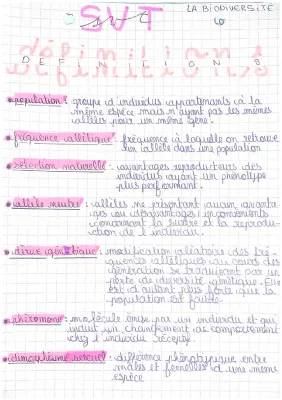 SVT
LA BIODIVERSITÉ
svt
définitions
DEFINITIONS
population : groupe d'individus appartenants à la
même espèce mais n'ayant pas les mêmes
allèles pour un même gène.
fréquence allélique : fréquence à laquelle on retrouve
un allèle dans une population
sélection naturelle : avantages reproducteurs des
individus ayant un phénotype
plus performant.
allèle neutre : allèles ne présentant aucun avanta-
ges ou désavantages/inconvénients
concernant la survie et la reprodu-
ction de l'individu.
dérive génétique : modification aléatoires des fré-
quences alléliques au cours des
génération se traduisant par une
perte de diversité génétique. Elle
est d'autant plus forte que la
population est faible.
phéromone : molécule émise par un individu et qui
induit un changement de comportement
chez l'individu récepteur.
dimorphisme sexuel : différence phénotypique entre
mâles et femelles d'une même
espèce